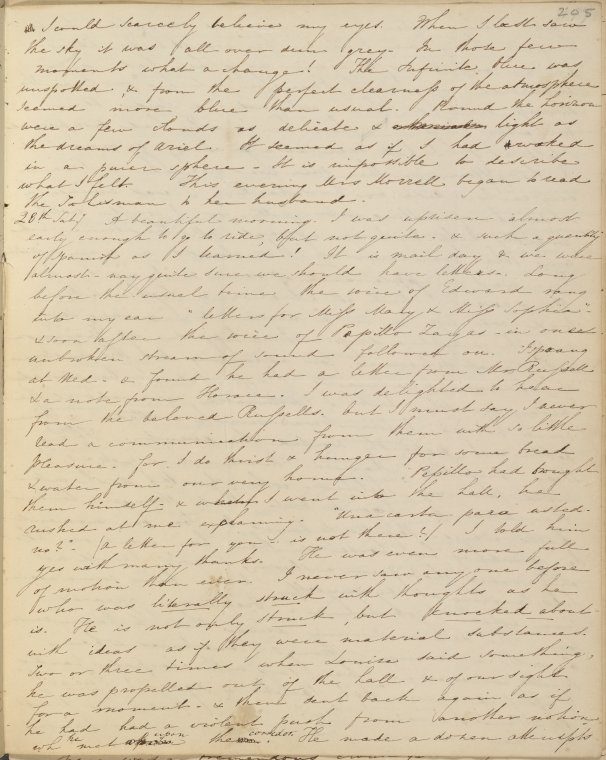 205
I could scarcely believe my eyes. When I last saw
the sky it was all over dun grey. In those few
moments what a change! The Infinite blue was
unspotted, & from the perfect clearness of the atmosphere
seemed more blue than usual. Round the horizon
were a few clouds as delicate & light as
the dreams of Ariel. It seemed as if I had awaked
in a purer sphere - It is impossible to describe
what I felt This evening Mrs Morrell began to read
the Talisman to her husband.
20th July A beautiful morning. I was uprisen almost
early enough to go to ride, but not quite. & such a quantity
of Spanish as I learned! It is mail day & we were
almost - nay quite sure we should have letters. Long
before the usual time the voice of Edward rang
into my ear "letters for Miss Mary & Miss Sophia"-
& soon after the voice of Pepillo Zayas - in one
unbroken stream of sound followed on. I sprang
at Ned - & found he had a letter from Mrs Russell
& a note from Horace. I was delighted to hear
from the beloved Russells. but I must say, I never
read a communication from them with so little
pleasure. for I do thirst & hunger for some bread
& water from our very home. Pepillo had brought
them himself & when I went into the hall, he
rushed at me exclaiming. "Una carta para usted-
no?"- (A letter for you - is not there?-) I told him
yes with many thanks. He was even more full
of motion than ever. I never saw any one before
who was literally struck with thoughts as he
is. He is not only struck, but knocked about
with ideas as if they were material substances.
Two or three times when Louisa said something,
he was propelled out of the hall & of our sight
for a moment - & then sent back again as if
he had had a violent push from another notion
wh he met upon the corridor. He made a dozen attempts